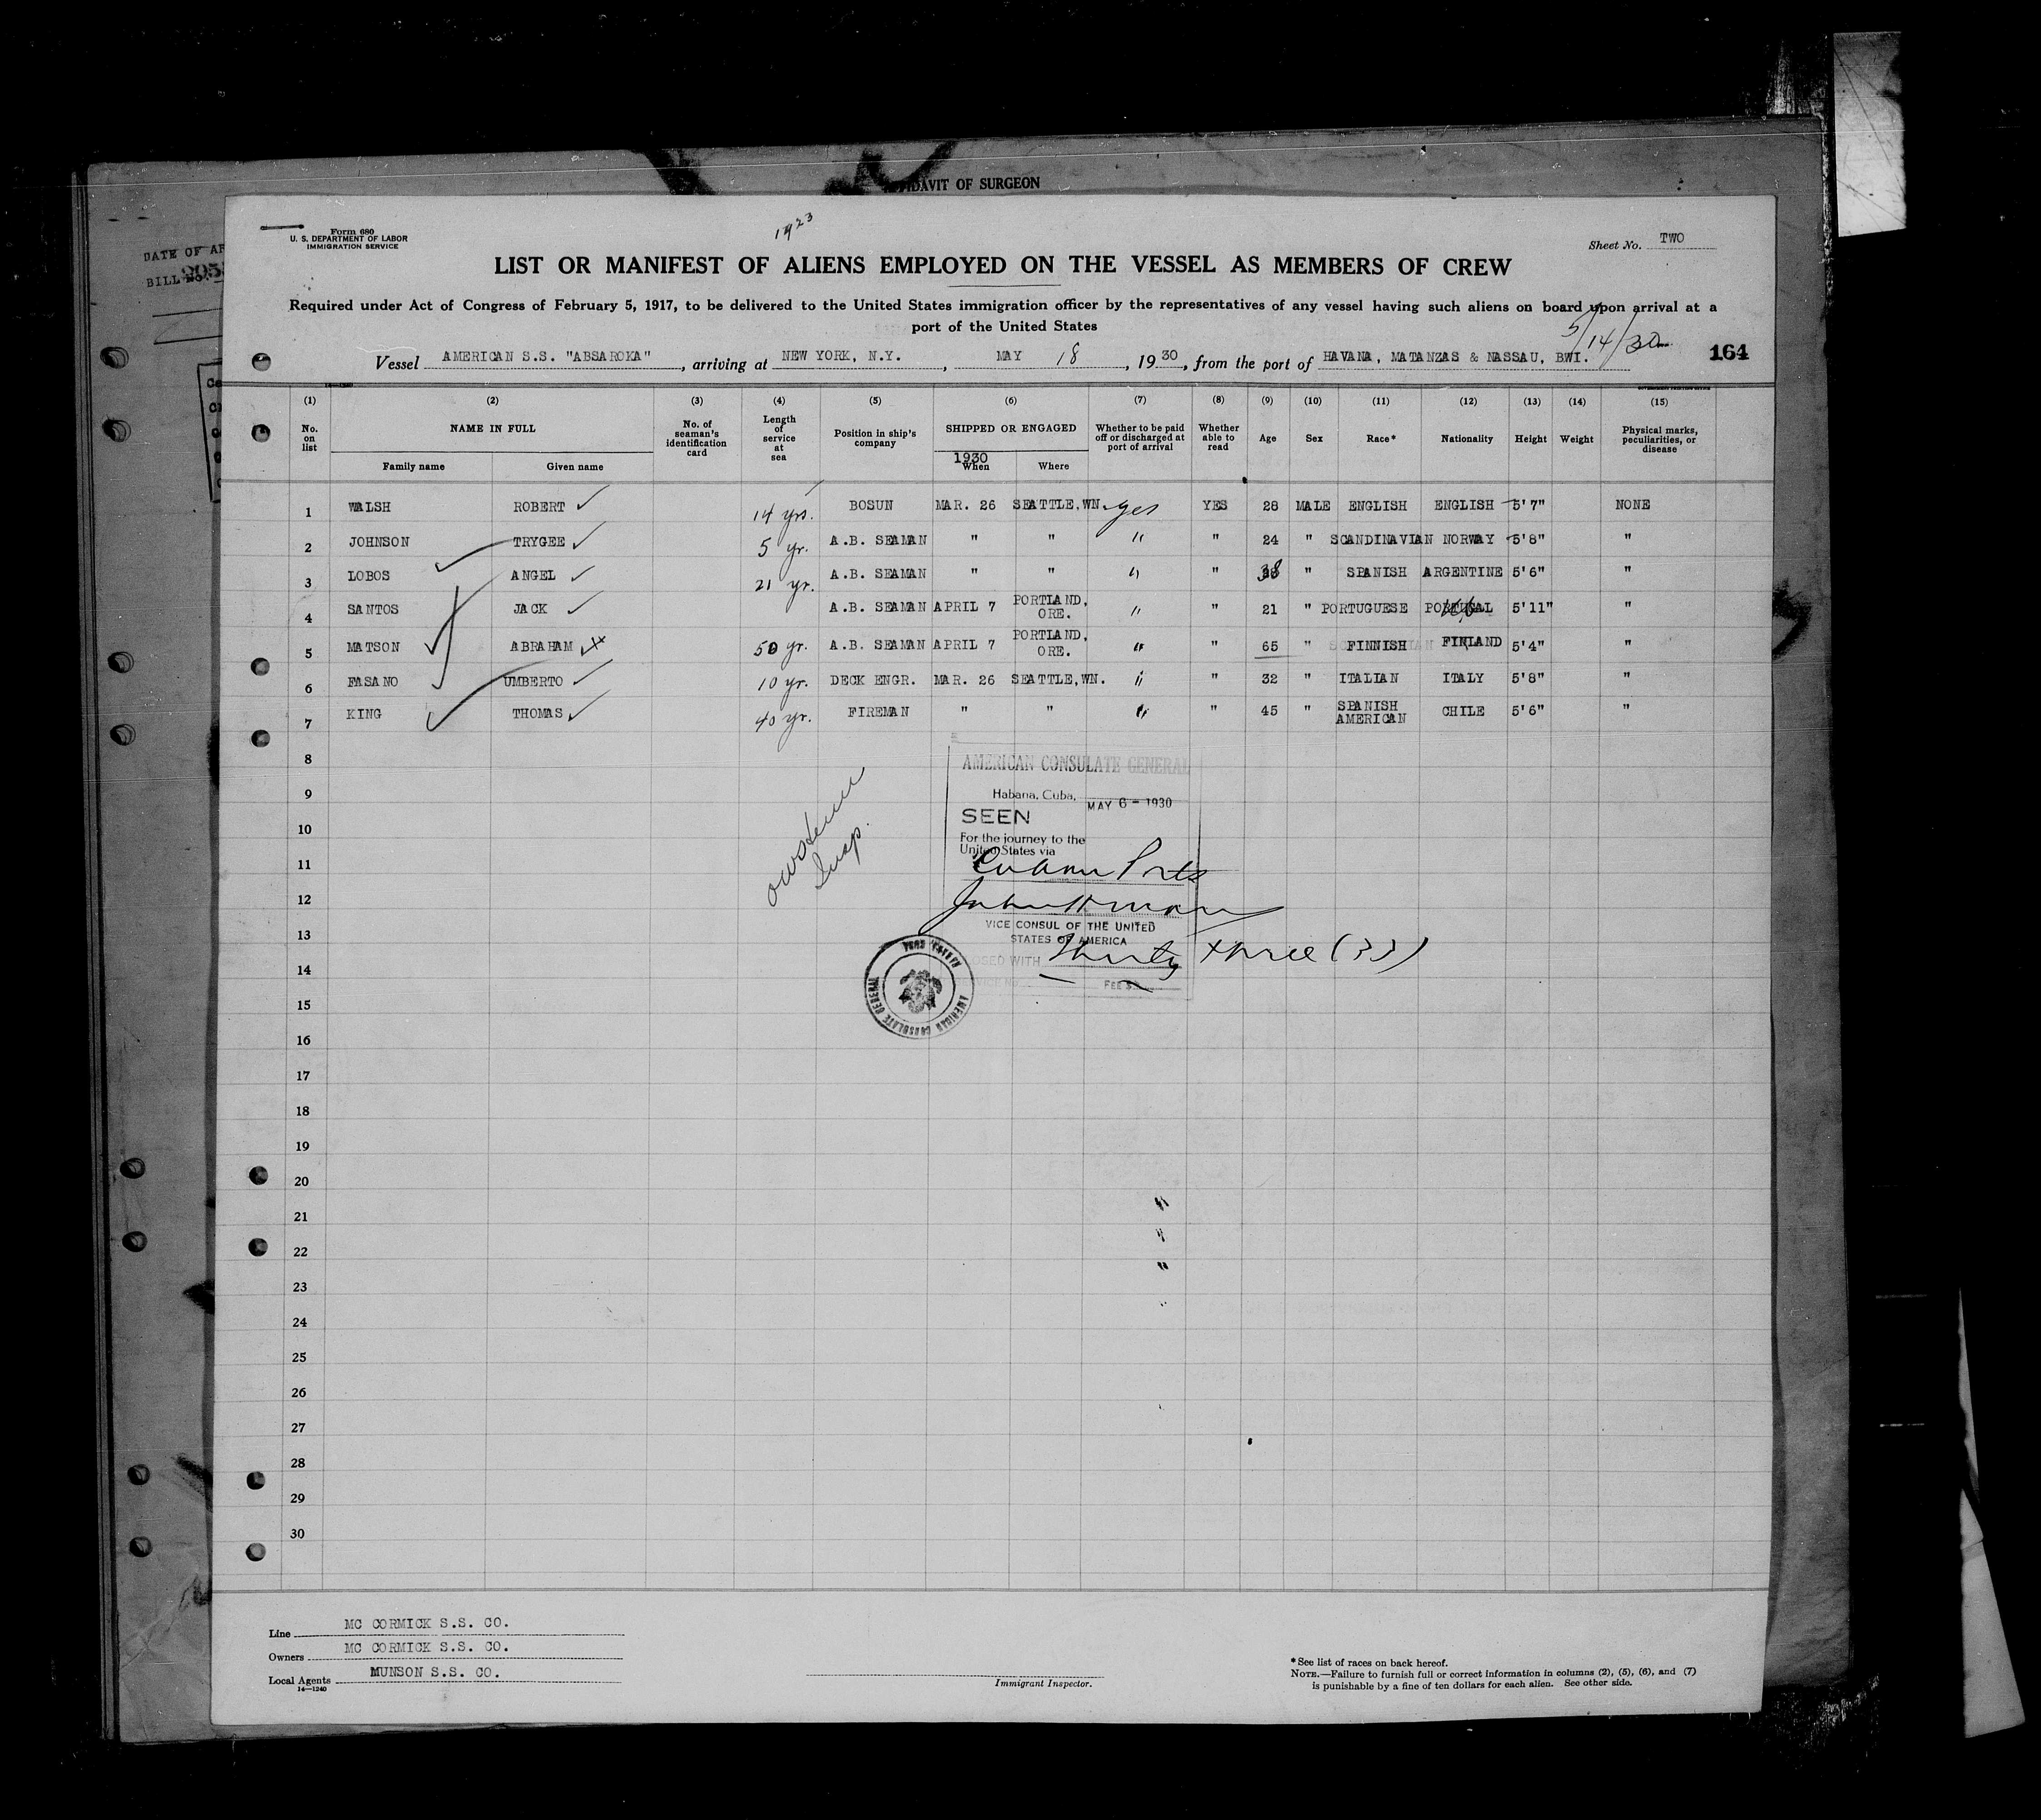 AFFIDAVIT OF SURGEON
1923
Form 680
U. S. DEPARTMENT OF LABOR
IMMIGRATION SERVICE
Sheet No. TWO
LIST OR MANIFEST OF ALIENS EMPLOYED ON THE VESSEL AS MEMBERS OF CREW
Required under Act of Congress of February 5, 1917, to be delivered to the United States immigration officer by the representatives of any vessel having such aliens on board upon arrival at a
port of the United States
5/14/30
Vessel AMERICAN S.S. "ABSAROKA", arriving at NEW YORK, N.Y., MAY 18, 1930, from the port of HAVANA, MATANZAS & NASSAU, BWI. 164
(1) (2) (3) (4) (5) (6) (7) (8) (9) (10) (11) (12) (13) (14) (15)
No. on list NAME IN FULL Family name Given name No. of seaman's identification card Length of service at sea Position in ship's company SHIPPED OR ENGAGED 1930 When Where Whether to be paid off or discharged at port of arrival Whether able to read Age Sex Race* Nationality Height Weight Physical marks, peculiarities, or disease
1 WALSH ROBERT 14 yrs. BOSUN MAR. 26 SEATTLE,WN. yes YES 28 MALE ENGLISH ENGLISH 5'7" NONE
2 JOHNSON TRYGEE 5 yr. A.B. SEAMAN " " " " 24 " SCANDINAVIAN NORWAY 5'8" "
3 LOBOS ANGEL 21 yr. A.B. SEAMAN " " " " 38 " SPANISH ARGENTINE 5'6" "
4 SANTOS JACK A.B. SEAMAN APRIL 7 PORTLAND, ORE. " " 21 " PORTUGUESE PORTUGAL 5'11" "
5 MATSON ABRAHAM 50 yr. A.B. SEAMAN APRIL 7 PORTLAND, ORE. " " 65 " FINNISH FINLAND 5'4" "
6 FASANO UMBERTO 10 yr. DECK ENGR. MAR. 26 SEATTLE,WN. " " 32 " ITALIAN ITALY 5'8" "
7 KING THOMAS 40 yr. FIREMAN " " " " 45 " SPANISH AMERICAN CHILE 5'6" "
8
9
10
11
12
13
14
15
16
17
18
19
20
21
22
23
24
25
26
27
28
29
30
AMERICAN CONSULATE GENERAL
Habana, Cuba, MAY 6 - 1930
SEEN
For the journey to the
United States via
Cuban Ports
VICE CONSUL OF THE UNITED
STATES OF AMERICA
Thirty three (33)
FEE $
AMERICAN CONSULATE GENERAL
Insp.
Line MC CORMICK S.S. CO.
Owners MC CORMICK S.S. CO.
Local Agents MUNSON S.S. CO.
14—1240
Immigrant Inspector.
*See list of races on back hereof.
NOTE.—Failure to furnish full or correct information in columns (2), (5), (6), and (7)
is punishable by a fine of ten dollars for each alien. See other side.